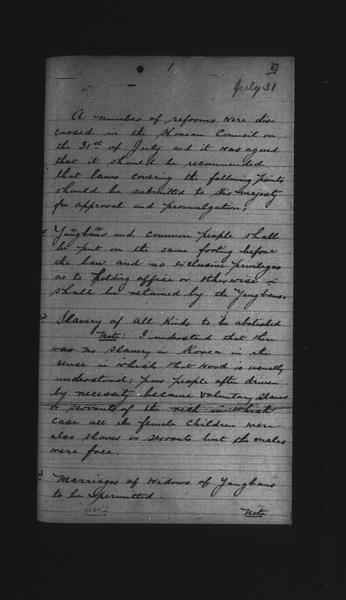 1
July 31
A number of reforms were dis
cussed in the Korean Council on
the 31st of July and it was agreed
that it should be recommended
that laws covering the following points
should be submitted to His majesty
for approval and promulgation;
Yangbans and common people shall
be put on the same footing before
the law and no exclusive privileges
as to holding office or otherwise
shall be retained by the Yangbans.
Slavery of all kinds to be abolished
Note: I understand that there
was no slavery in Korea in the
sense in which that word is usually
understood; poor people often driven
by necessity became voluntary slaves
or servants of the rich in which
case all the female children were
also slaves or servants but the males
were free.
Marriages of widows of Yangbans
to be permitted.
Note